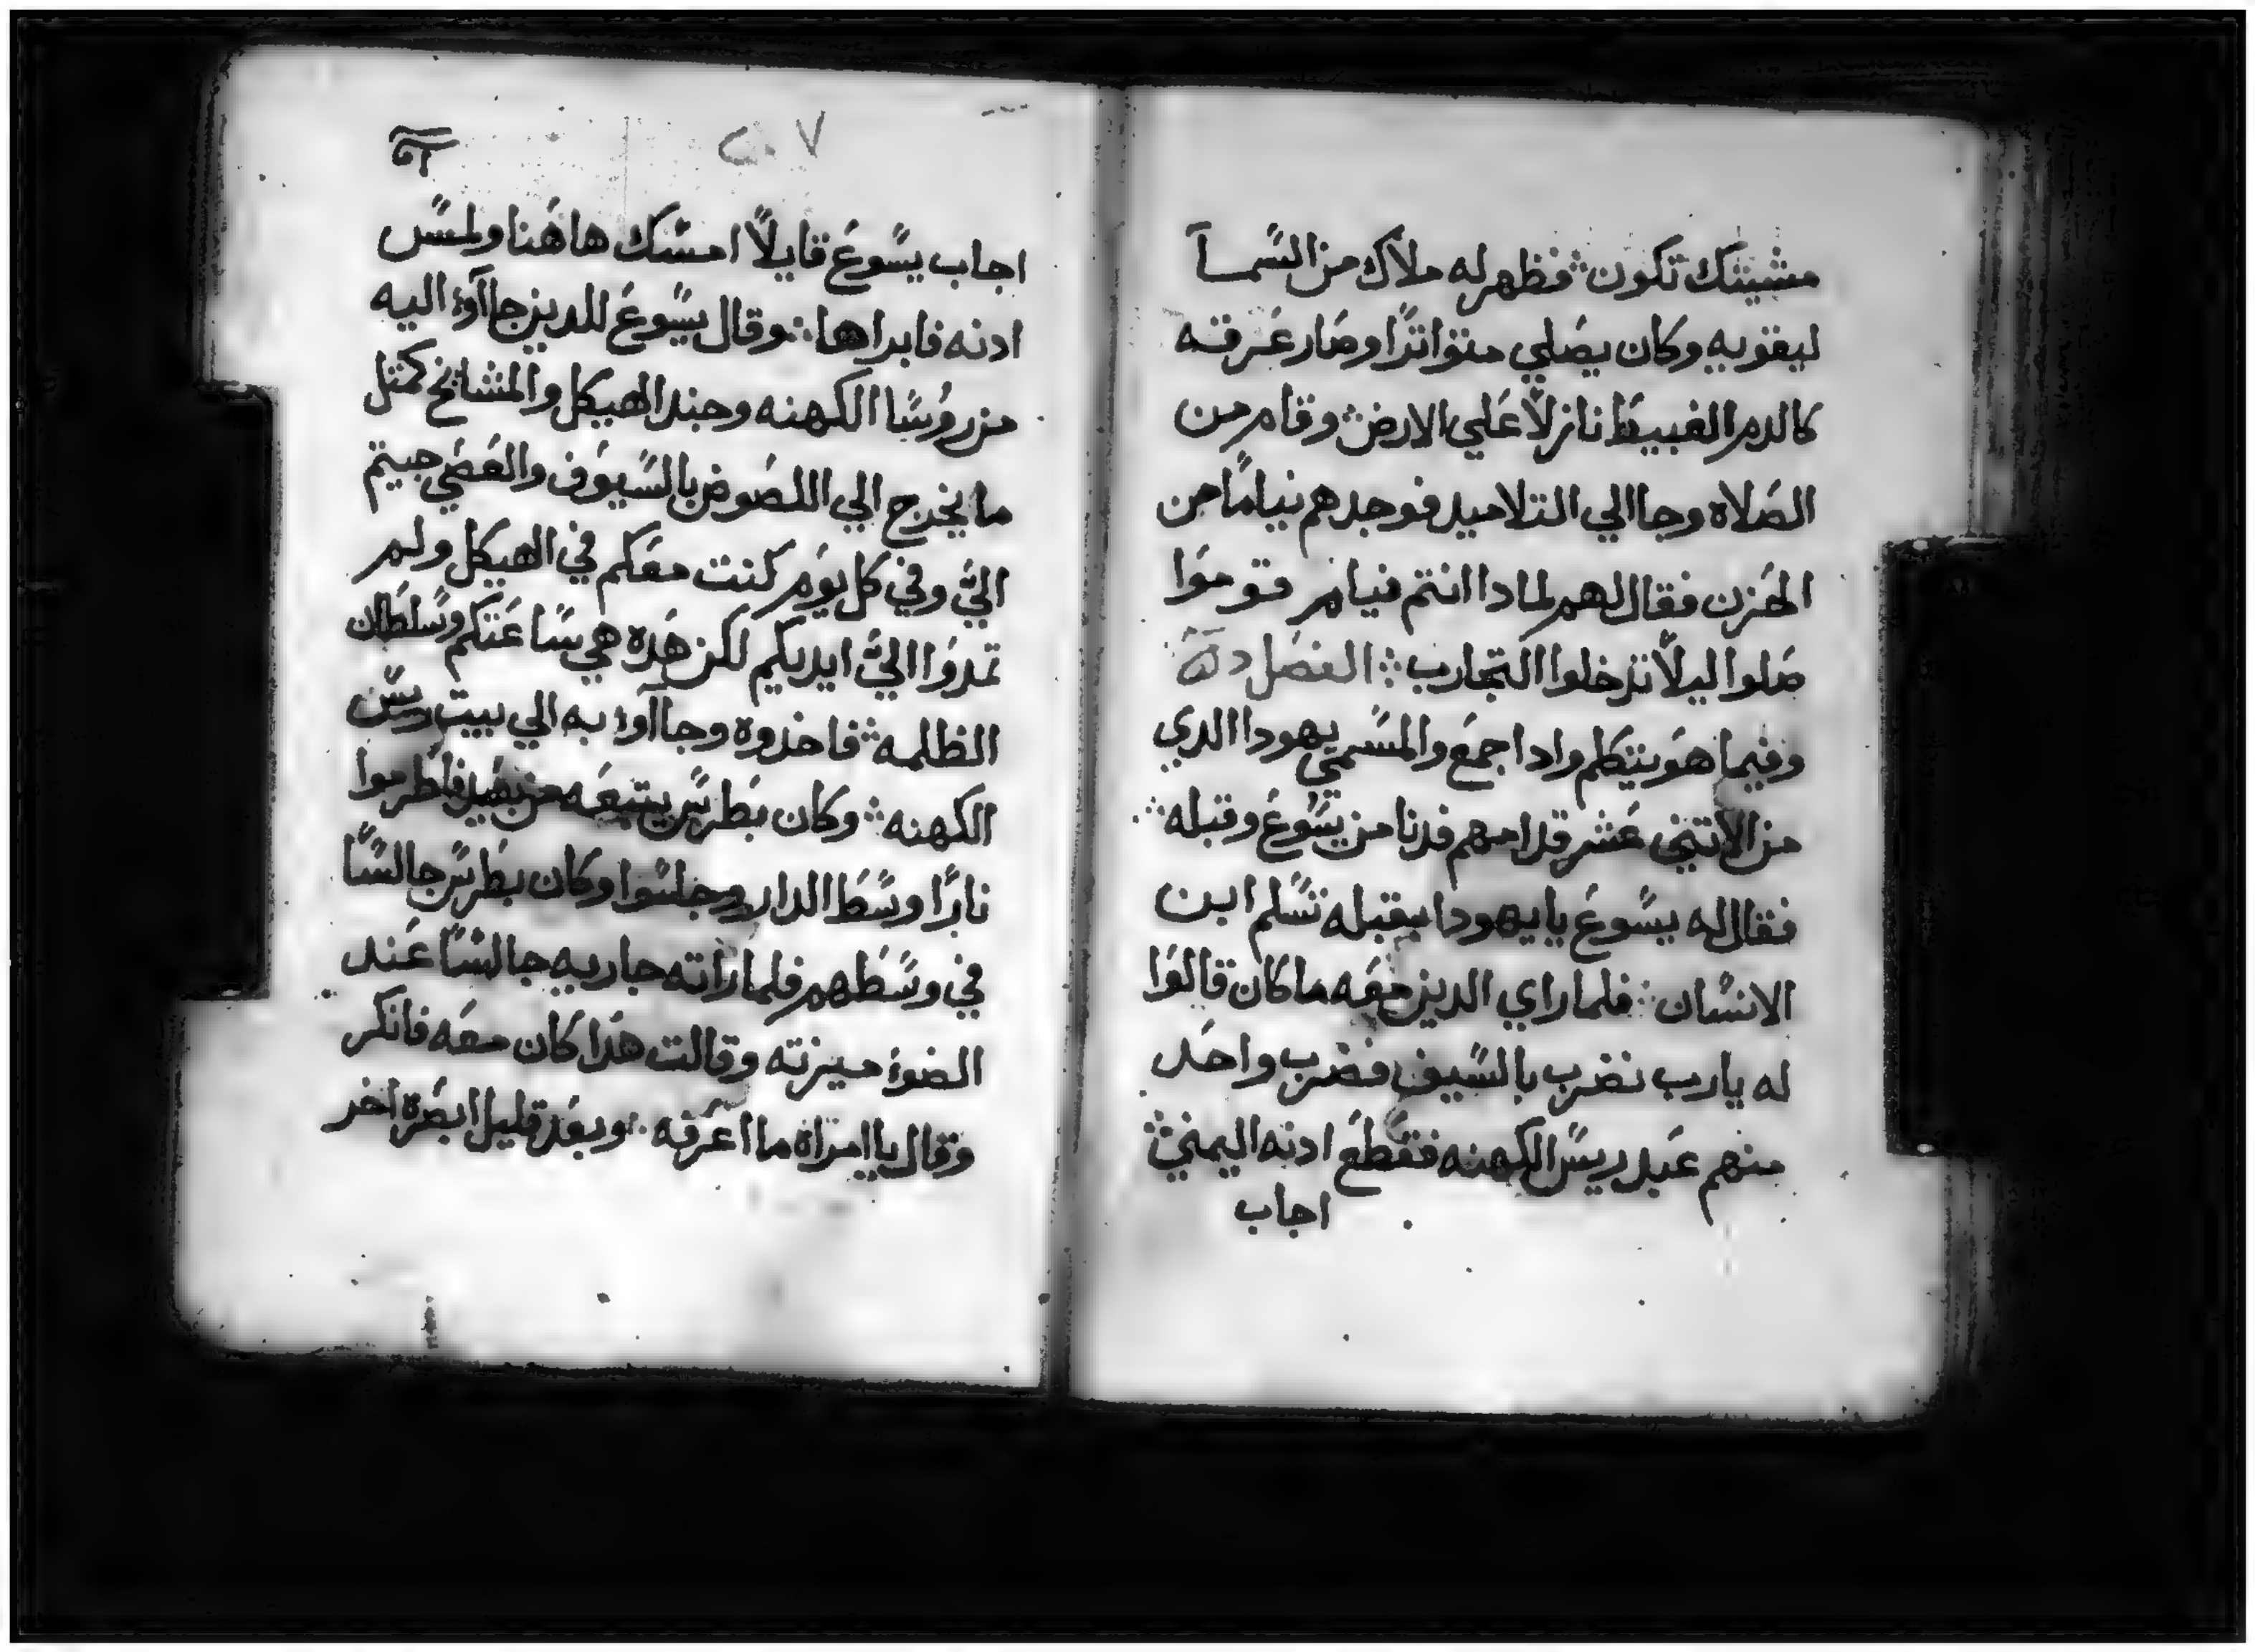 مشيتك تكون ჻ فظهر له ملاك من السما
ليقويه وكان يصلي متواترًا وصار عرقه
كالدم الغبيط نازلًا علي الارض ჻ وقام من
الصلاه وجا الي التلاميد فوجدهم نيامًا من
الحزن فقال لهم لمادا انتم نيام قوموا
صلوا ليلًا تدخلوا التجارب ჻ الفصل
وفيما هو يتكلم وادا جمع والمسمي يهودا الدي
من الاتني عشر قدامهم فدنا من يسوع وقبله ჻
فقال له يسوع يا يهودا بقبله تسلم ابن
الانسان ჻ فلما راي الدين معه ما كان قالوا
له يارب نضرب بالسيف فضرب واحد
منهم عبد ريس الكهنه فقطع ادنه اليمني ჻
اجاب
اجاب يسوع قايلًا امسك هاهنا ولمس
ادنه فابراها ჻ وقال يسوع للدين جاآوٓا اليه
من روسا الكهنه وجند الهيكل والمشايخ كمتل
ما يخرج الي اللصوص بالسيوف والعصي جيتم
اليّ وفي كل يوم كنت معكم في الهيكل ولم
تمدوا اليّ ايديكم لكن هده هي ساعتكم وسلطان
الظلمه ჻ فاخذوه وجاآوا به الي بيت ريس
الكهنه ჻ وكان بطرس يتبعه من بعيد فاضرموا
نارًا وسط الدار وجلسوا وكان بطرس جالسًا
في وسطهم فلما راته جاريه جالسًا عند
الضوء ميزته وقالت هدا كان معه فانكر
وقال يا امراه ما اعرفه ჻ وبعد قليل ابصره اخر